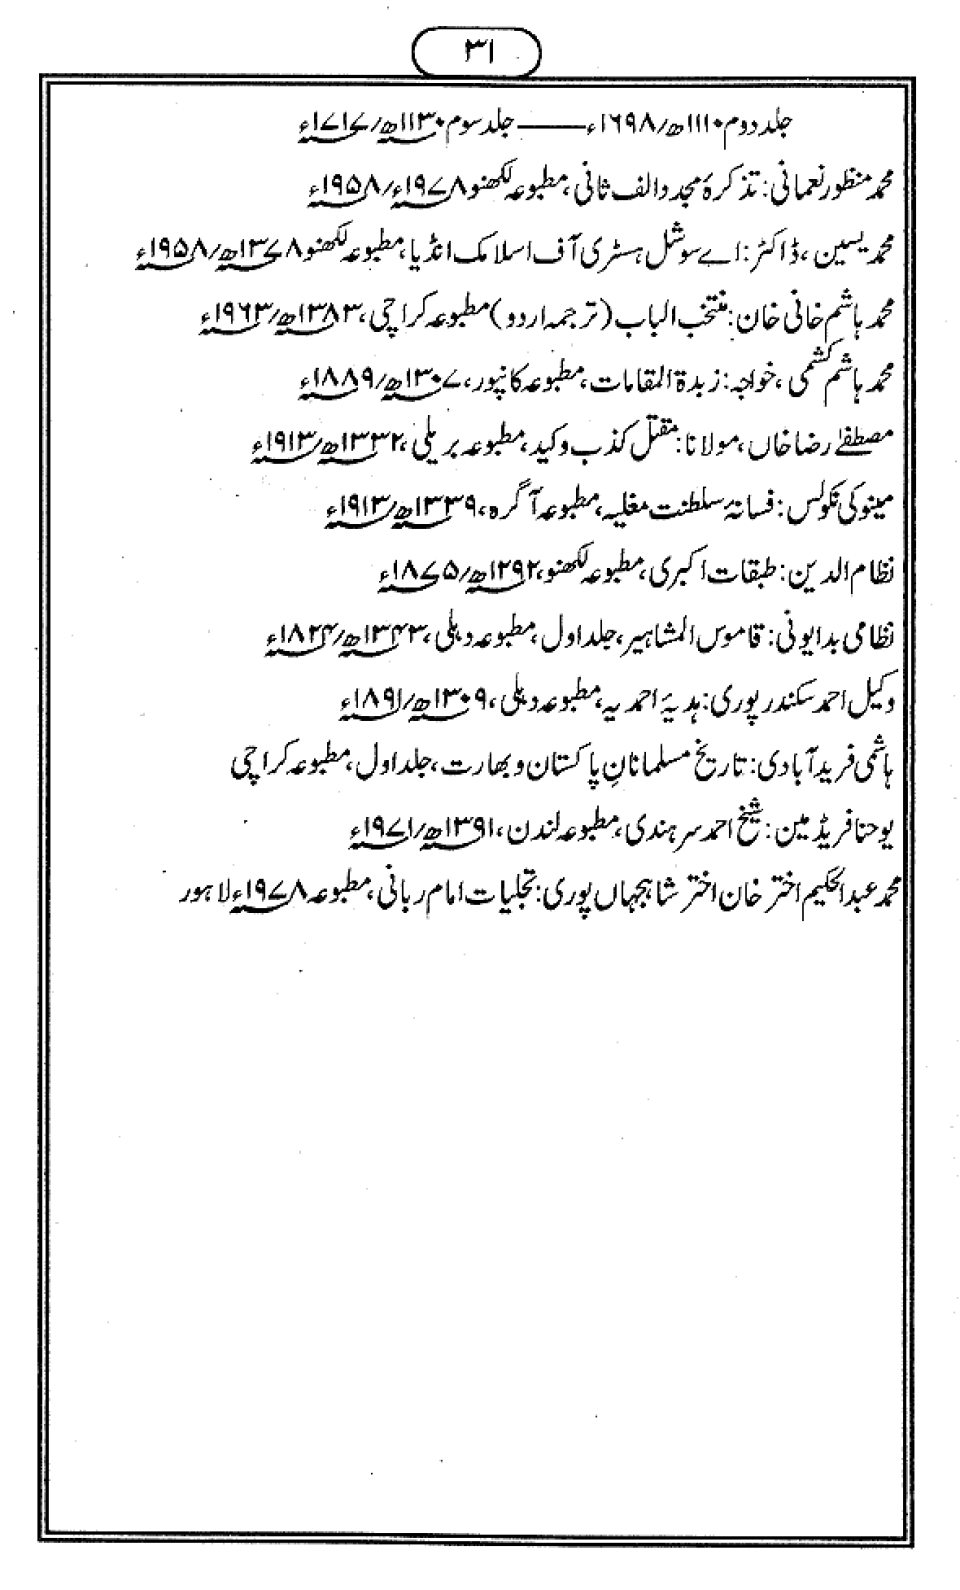 ۳۱
جلد دوم ۱۱۱۰ھ/۱۶۹۸ء —— جلد سوم ۱۱۳۰ھ/۱۷۱۷ء
محمد منظور نعمانی: تذکرۂ مجدد الف ثانی، مطبوعہ لکھنو ۱۹۷۸ء/۱۹۵۸ء
محمد یسین، ڈاکٹر: اے سوشل ہسٹری آف اسلامک انڈیا، مطبوعہ لکھنو ۱۳۷۸ھ/۱۹۵۸ء
محمد ہاشم خانی خان: منتخب الباب (ترجمہ اردو) مطبوعہ کراچی، ۱۳۸۳ھ/۱۹۶۳ء
محمد ہاشم کشمی، خواجہ: زبدۃ المقامات، مطبوعہ کانپور، ۱۳۰۷ھ/۱۸۸۹ء
مصطفےٰ رضا خاں، مولانا: مقتل کذب وکید، مطبوعہ بریلی، ۱۳۳۲ھ/۱۹۱۳ء
مینوکی نکولس: فسانۂ سلطنت مغلیہ، مطبوعہ آگرہ، ۱۳۳۹ھ/۱۹۱۳ء
نظام الدین: طبقات اکبری، مطبوعہ لکھنو، ۱۲۹۲ھ/۱۸۷۵ء
نظامی بدایونی: قاموس المشاہیر، جلد اول، مطبوعہ دہلی، ۱۳۴۳ھ/۱۸۲۴ء
وکیل احمد سکندر پوری: ہدیۂ احمدیہ، مطبوعہ دہلی، ۱۳۰۹ھ/۱۸۹۱ء
ہاشمی فرید آبادی: تاریخ مسلمانانِ پاکستان و بھارت، جلد اول، مطبوعہ کراچی
یوحنا فریڈ مین: شیخ احمد سرہندی، مطبوعہ لندن، ۱۳۹۱ھ/۱۹۷۱ء
محمد عبدالحکیم اختر خان اختر شاہجہاں پوری: تجلیات امام ربانی، مطبوعہ ۱۹۷۸ء لاہور